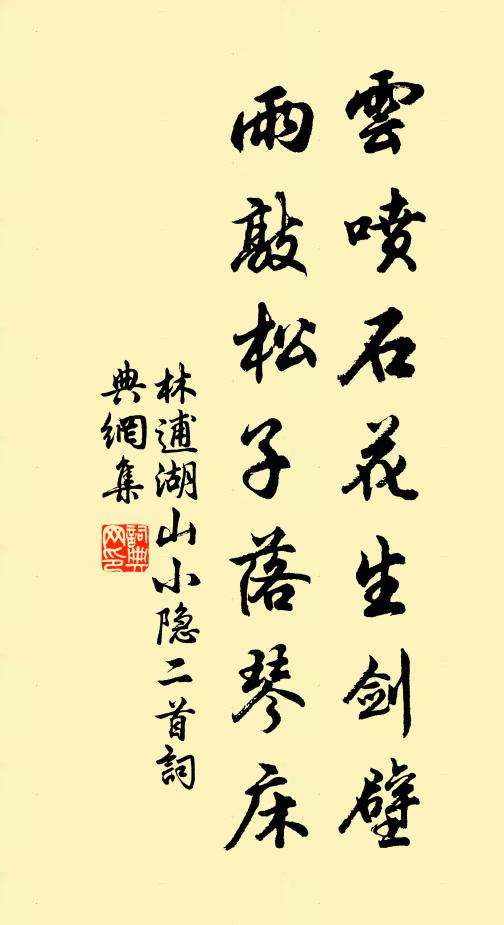 雲噴石花生剑壁
雨敲松子落琴床
林逋湖山小隐二首詞
典網集
詞典
网印